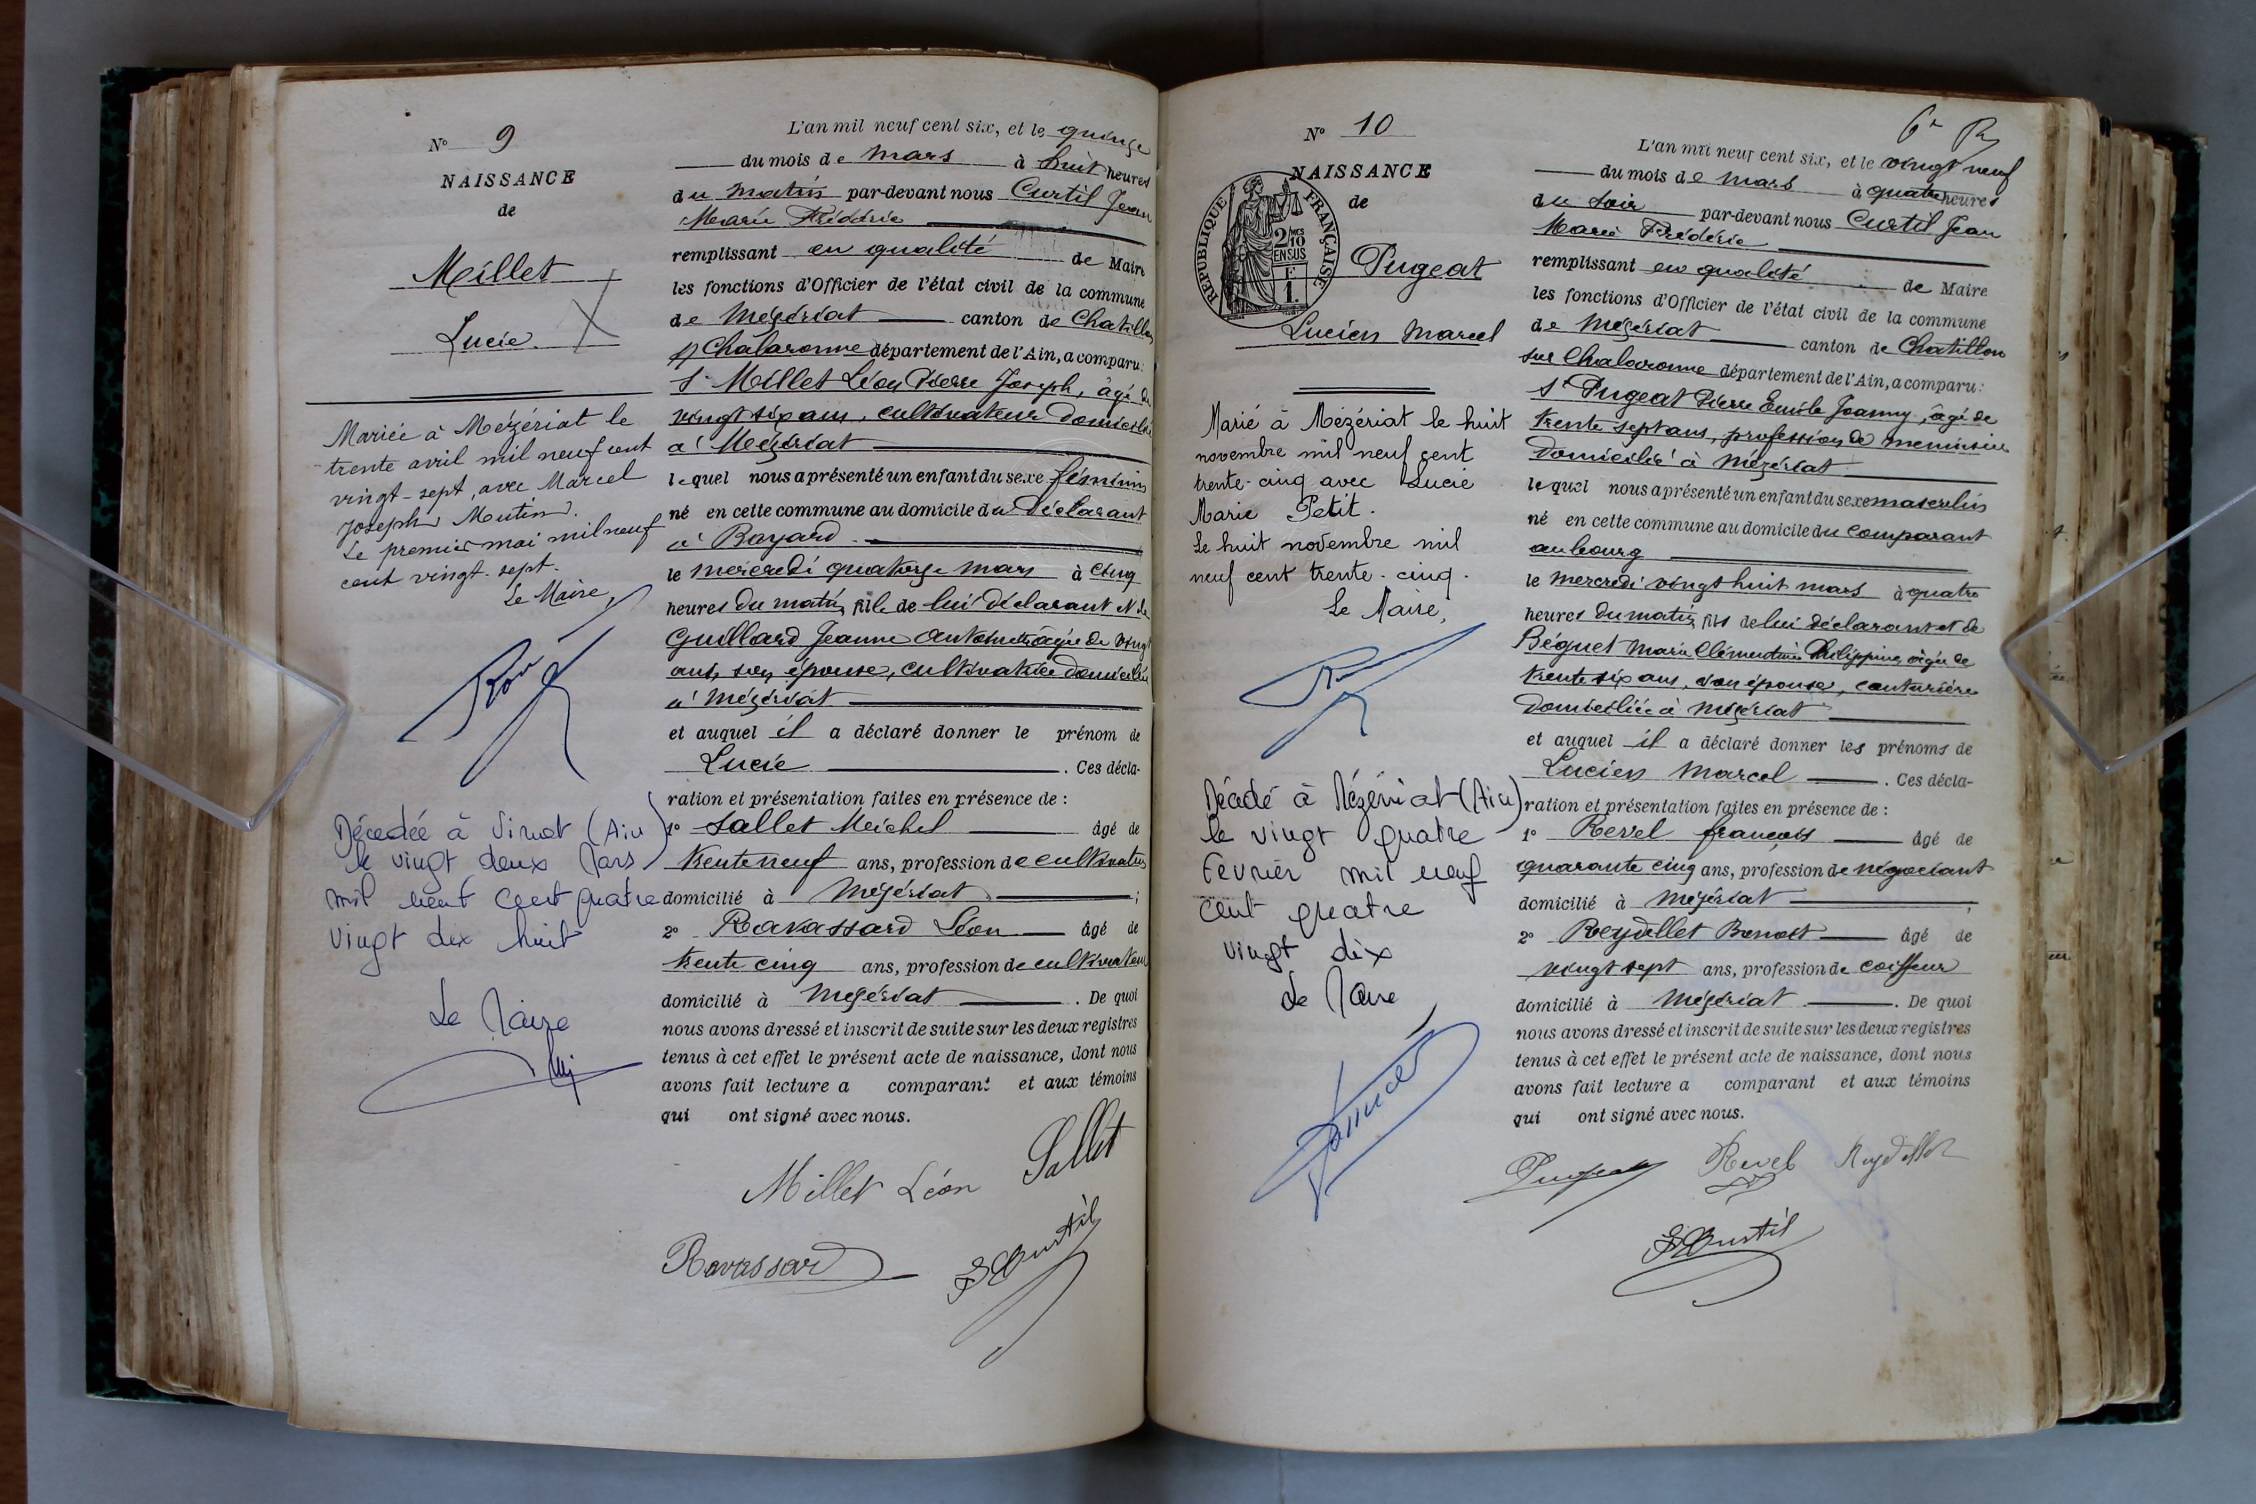 N° 9
NAISSANCE
de
Millet
Lucie.
Mariée à Mézériat le
trente avril mil neuf cent
vingt-sept, avec Marcel
Joseph Mutin.
Le premier mai mil neuf
cent vingt-sept.
Le Maire,
Décédée à Viriat (Ain)
le vingt deux Mars
mil neuf cent quatre
vingt dix huit
Le Maire
L'an mil neuf cent six, et le quinze
du mois de mars à huit heures
du matin par-devant nous Curtil Jean
Marie Frédéric
remplissant en qualité de Maire
les fonctions d'Officier de l'état civil de la commune
de Mézériat canton de Chatillon
s/ Chalaronne département de l'Ain, a comparu:
S. Millet Léon Pierre Joseph, âgé de
vingt six ans, cultivateur domicilié
à Mézériat
lequel nous a présenté un enfant du sexe féminin
né en cette commune au domicile du déclarant
à Bayard
le mercredi quatorze mars à cinq
heures du matin, fille de lui déclarant et de
Guillard Jeanne Antoinette âgée de vingt
ans, son épouse, cultivatrice domiciliée
à Mézériat
et auquel il a déclaré donner le prénom de
Lucie . Ces décla-
ration et présentation faites en présence de :
1° Sallet Michel âgé de
trente neuf ans, profession de cultivateur
domicilié à Mézériat ;
2° Ravassard Léon âgé de
trente cinq ans, profession de cultivateur
domicilié à Mézériat . De quoi
nous avons dressé et inscrit de suite sur les deux registres
tenus à cet effet le présent acte de naissance, dont nous
avons fait lecture a comparant et aux témoins
qui ont signé avec nous.
Millet Léon Sallet
Ravassard F Curtil
6e
N° 10
NAISSANCE
de
REPUBLIQUE FRANÇAISE
2/10
EN SUS
1F
Pugeat
Lucien Marcel
Marié à Mézériat le huit
novembre mil neuf cent
trente-cinq avec Lucie
Marie Petit.
Le huit novembre mil
neuf cent trente-cinq.
Le Maire,
Décédé à Mézériat (Ain)
le vingt quatre
Février mil neuf
cent quatre
vingt dix
Le Maire
L'an mil neuf cent six, et le vingt neuf
du mois de mars à quatre heures
du soir par-devant nous Curtil Jean
Marie Frédéric
remplissant en qualité de Maire
les fonctions d'Officier de l'état civil de la commune
de Mézériat canton de Chatillon
sur Chalaronne département de l'Ain, a comparu:
Sr Pugeat Pierre Emile Joanny, âgé de
trente sept ans, profession de menuisier
domicilié à Mézériat
lequel nous a présenté un enfant du sexe masculin
né en cette commune au domicile du comparant
au bourg
le mercredi vingt huit mars à quatre
heures du matin, fils de lui déclarant et de
Béguet Marie Clémentine Philippine âgée de
trente six ans, son épouse, couturière
domiciliée à Mézériat
et auquel il a déclaré donner les prénoms de
Lucien Marcel . Ces décla-
ration et présentation faites en présence de :
1° Revel François âgé de
quarante cinq ans, profession de négociant
domicilié à Mézériat ;
2° Reydellet Benoit âgé de
vingt sept ans, profession de coiffeur
domicilié à Mézériat . De quoi
nous avons dressé et inscrit de suite sur les deux registres
tenus à cet effet le présent acte de naissance, dont nous
avons fait lecture a comparant et aux témoins
qui ont signé avec nous.
Pugeat Revel Reydellet
F Curtil